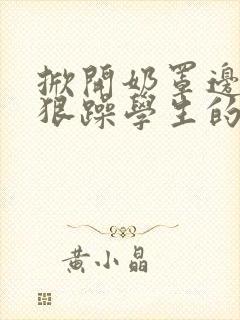 掀開奶罩邊
狠躁學生的
黃小晶